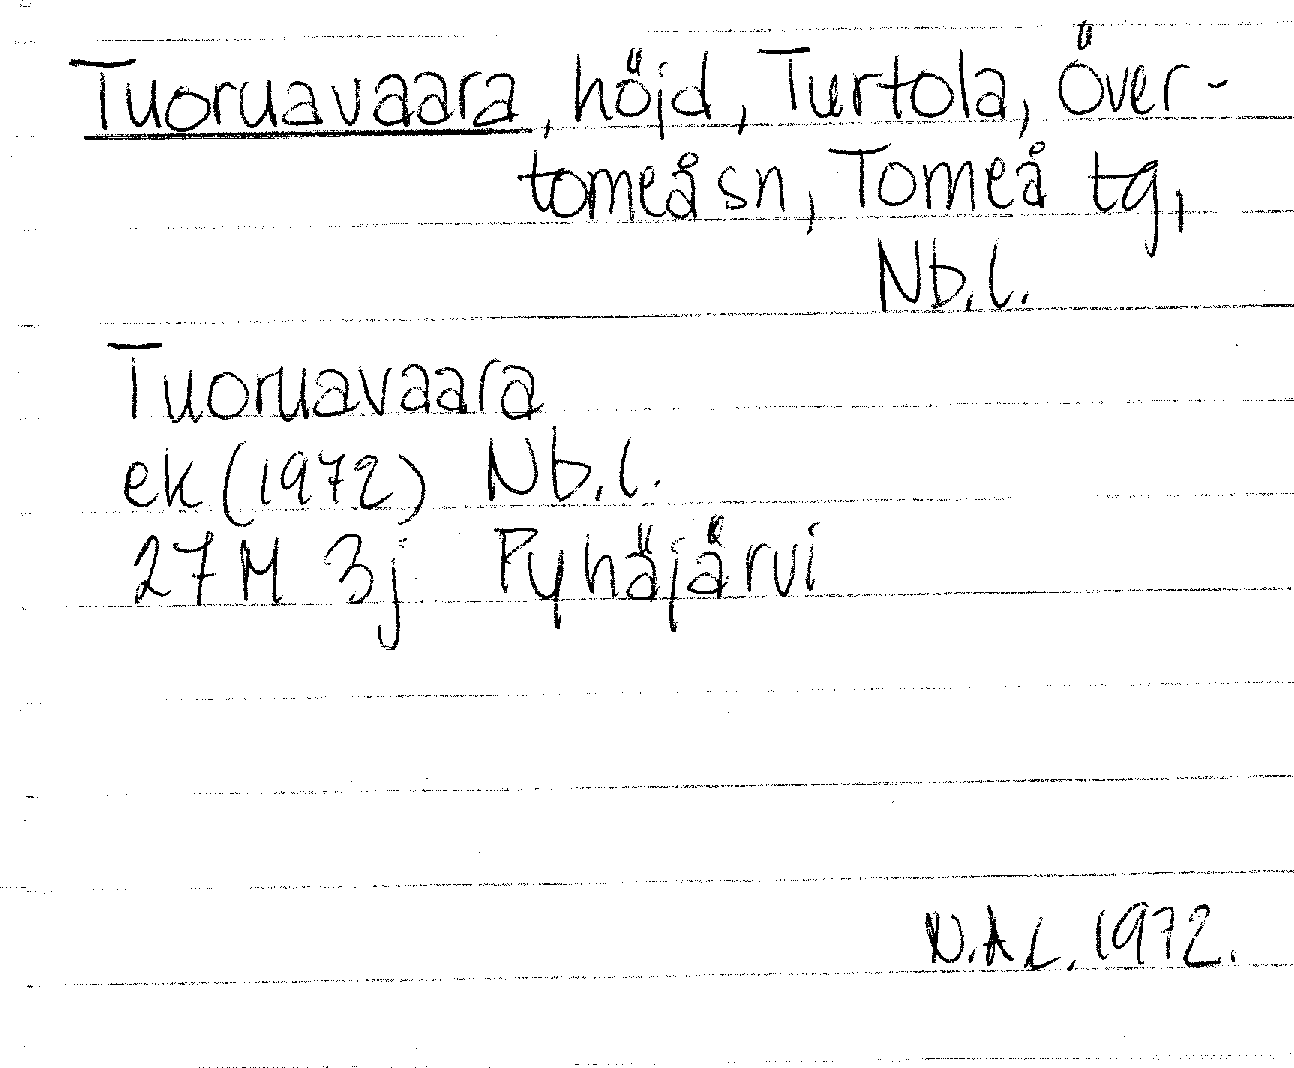 Tuoruavaara, höjd, Turtola, Över-
torneå sn, Torneå tg,
Nb.l.
Tuoruavaara
ek (1972) Nb.l.
27M 3j Pyhäjärvi
N.A.L. 1972.